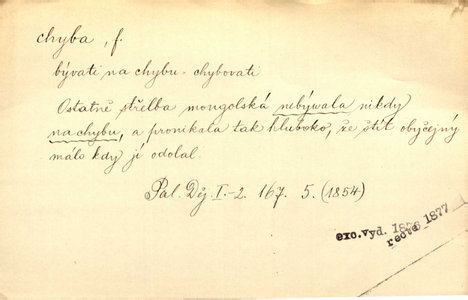 chyba, f.
bývati na chybu - chybovati
Ostatně střelba mongolská nebývala nikdy
na chybu, a pronikala tak hluboko, že štít obyčejný
málo kdy jí odolal.
Pal. Děj. I.-2. 167. 5. (1854)
exc. vyd. 1876
recte 1877